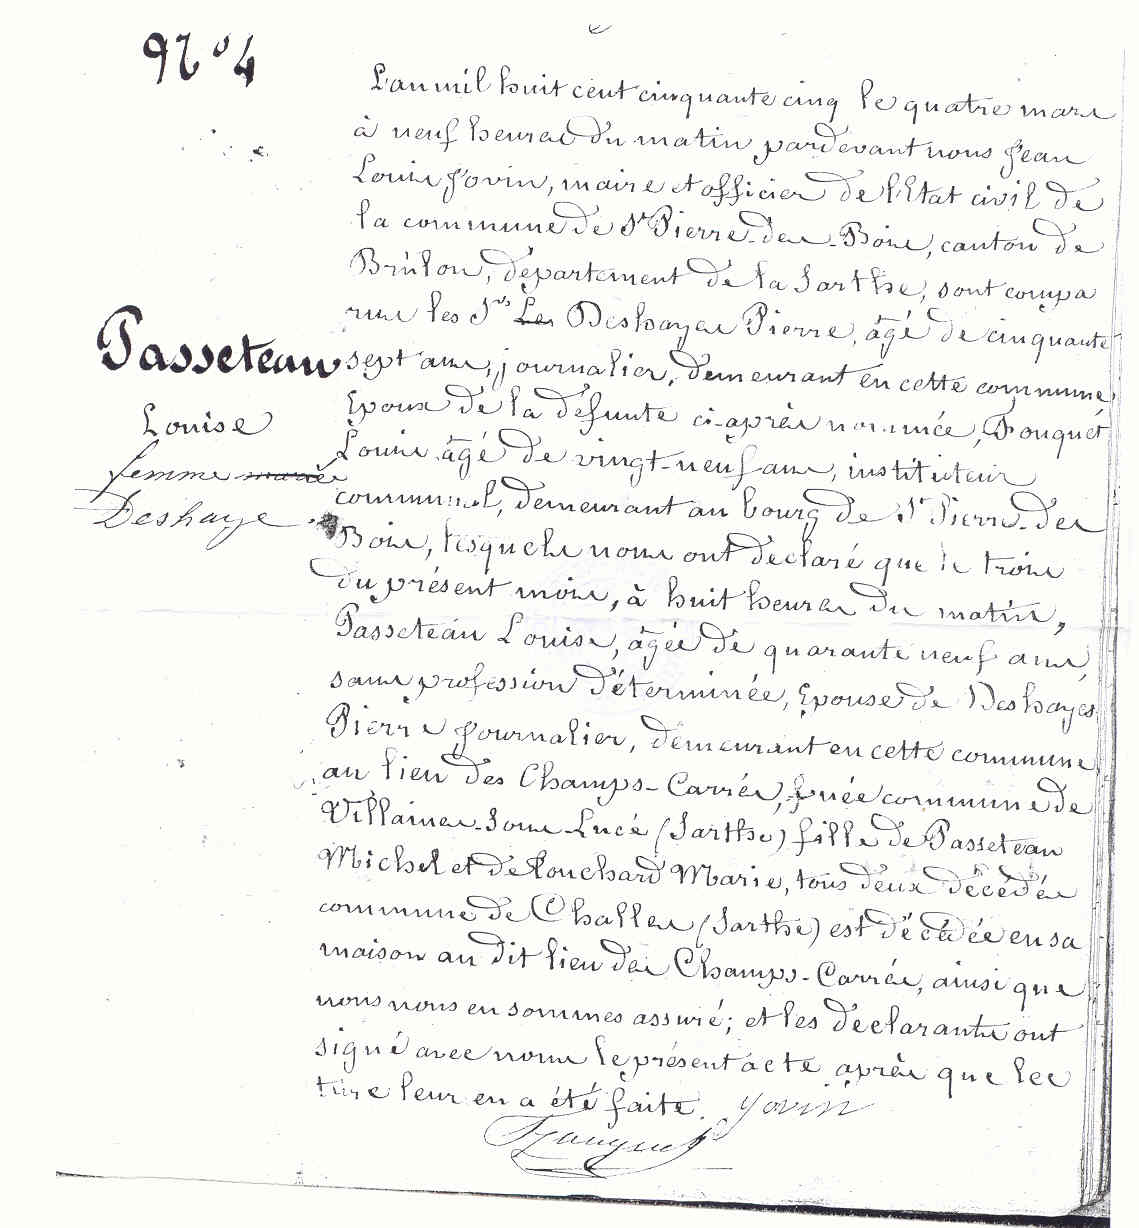 N° 4
L'an mil huit cent cinquante cinq le quatre mars
à neuf heures du matin pardevant nous Jean
Louis Jovin, maire et officier de l'Etat civil de
la commune de St Pierre-des-Bois, canton de
Brûlon, département de la Sarthe, sont compa
rus les Srs Les Deshayes Pierre, âgé de cinquante
Passeteau
sept ans, journalier, demeurant en cette commune,
Epoux de la défunte ci-après nommée, Fouquet
Louise
Louis âgé de vingt-neuf ans, instituteur
femme mariée
communal, demeurant au bourg de St Pierre-des
Deshaye
Bois, lesquels nous ont declaré que le trois
du présent mois, à huit heures du matin,
Passeteau Louise, âgée de quarante neuf ans,
sans profession déterminée, Epouse de Deshayes
Pierre Journalier, demeurant en cette commune,
au lieu des Champs-Carrés, née commune de
Villaines-Sous-Lucé (Sarthe) fille de Passeteau
Michel et de Louchard Marie, tous deux décédés
commune de Challes (Sarthe) est décédée en sa
maison au dit lieu des Champs-Carrés, ainsi que
nous nous en sommes assuré; et les déclarants ont
signé avec nous le présent acte après que lec
ture leur en a été faite. Jovin
Fouquet